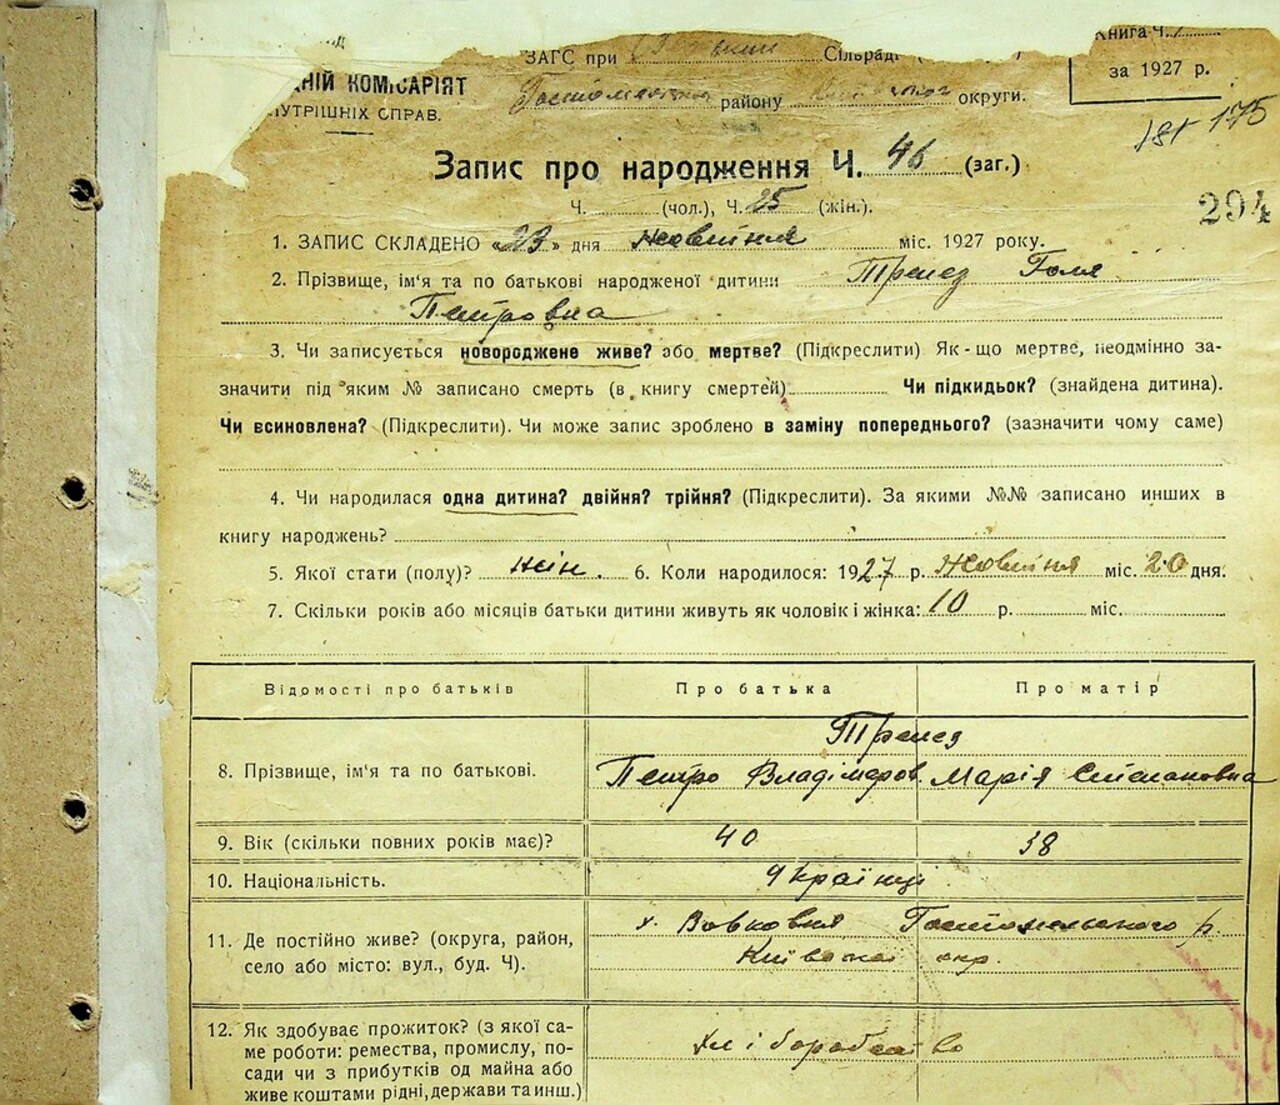 ЗАГС при Сільраді (
Книга Ч.
НІЙ КОМІСАРІЯТ
УТРІШНІХ СПРАВ.
району округи.
за 1927 р.
181 175
Запис про народження Ч. 46 (заг.)
Ч. (чол.), Ч. 25 (жін.).
294
1. ЗАПИС СКЛАДЕНО «23» дня Жовтня міс. 1927 року.
2. Прізвище, ім'я та по батькові народженої дитини Галя
Петровна
3. Чи записується новороджене живе? або мертве? (Підкреслити) Як-що мертве, неодмінно за-
значити під яким № записано смерть (в книгу смертей) Чи підкидьок? (знайдена дитина).
Чи всиновлена? (Підкреслити). Чи може запис зроблено в заміну попереднього? (зазначити чому саме)
4. Чи народилася одна дитина? двійня? трійня? (Підкреслити). За якими №№ записано инших в
книгу народжень?
5. Якої стати (полу)? жін. 6. Коли народилося: 1927 р. Жовтня міс. 20 дня.
7. Скільки років або місяців батьки дитини живуть як чоловік і жінка: 10 р. міс.
Відомості про батьків Про батька Про матір
8. Прізвище, ім'я та по батькові. Петро Владімеров. Марія Степановна
9. Вік (скільки повних років має)? 40 38
10. Національність. Українці
11. Де постійно живе? (округа, район,
село або місто: вул., буд. Ч).
х. Вовковня Гостомельского р.
Київскої окр.
12. Як здобуває прожиток? (з якої са-
ме роботи: ремества, промислу, по-
сади чи з прибутків од майна або
живе коштами рідні, держави та инш.)
Хліборобство